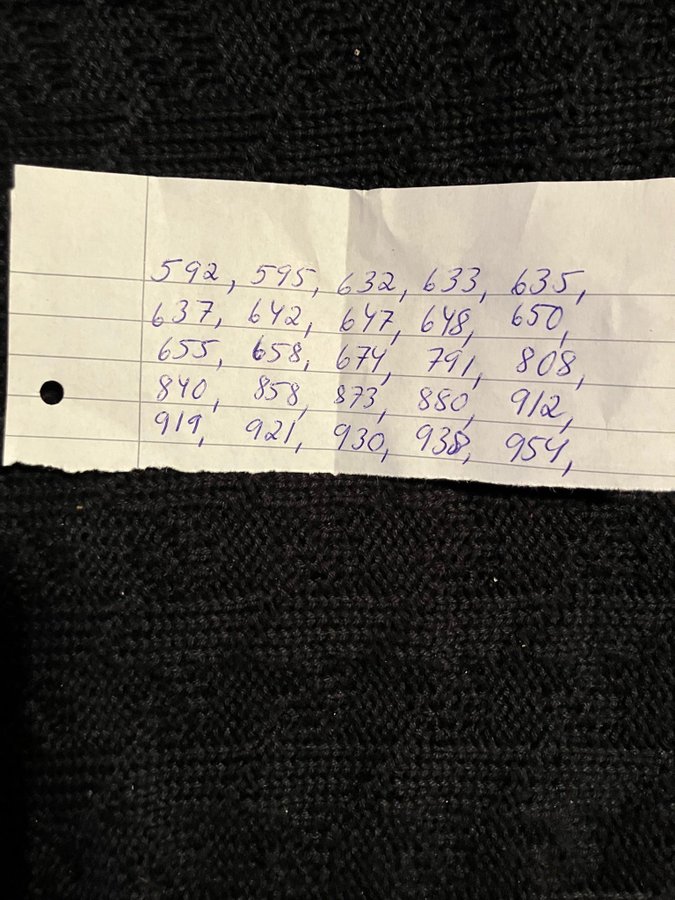 592, 595, 632, 633, 635,
637, 642, 647, 648, 650,
655, 658, 674, 791, 808,
840, 858, 873, 880, 912,
919, 921, 930, 938, 954,